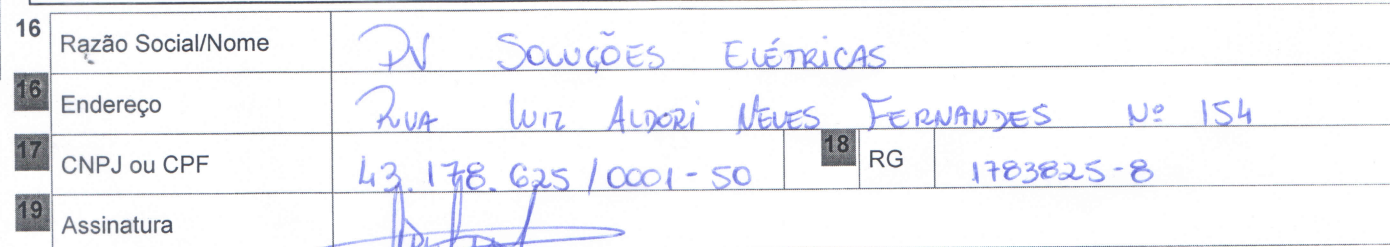 16 Razão Social/Nome DV SOLUÇÕES ELÉTRICAS
16 Endereço RUA LUIZ ALDORI NEVES FERNANDES Nº 154
17 CNPJ ou CPF 43.178.625/0001-50 18 RG 1783825-8
19 Assinatura